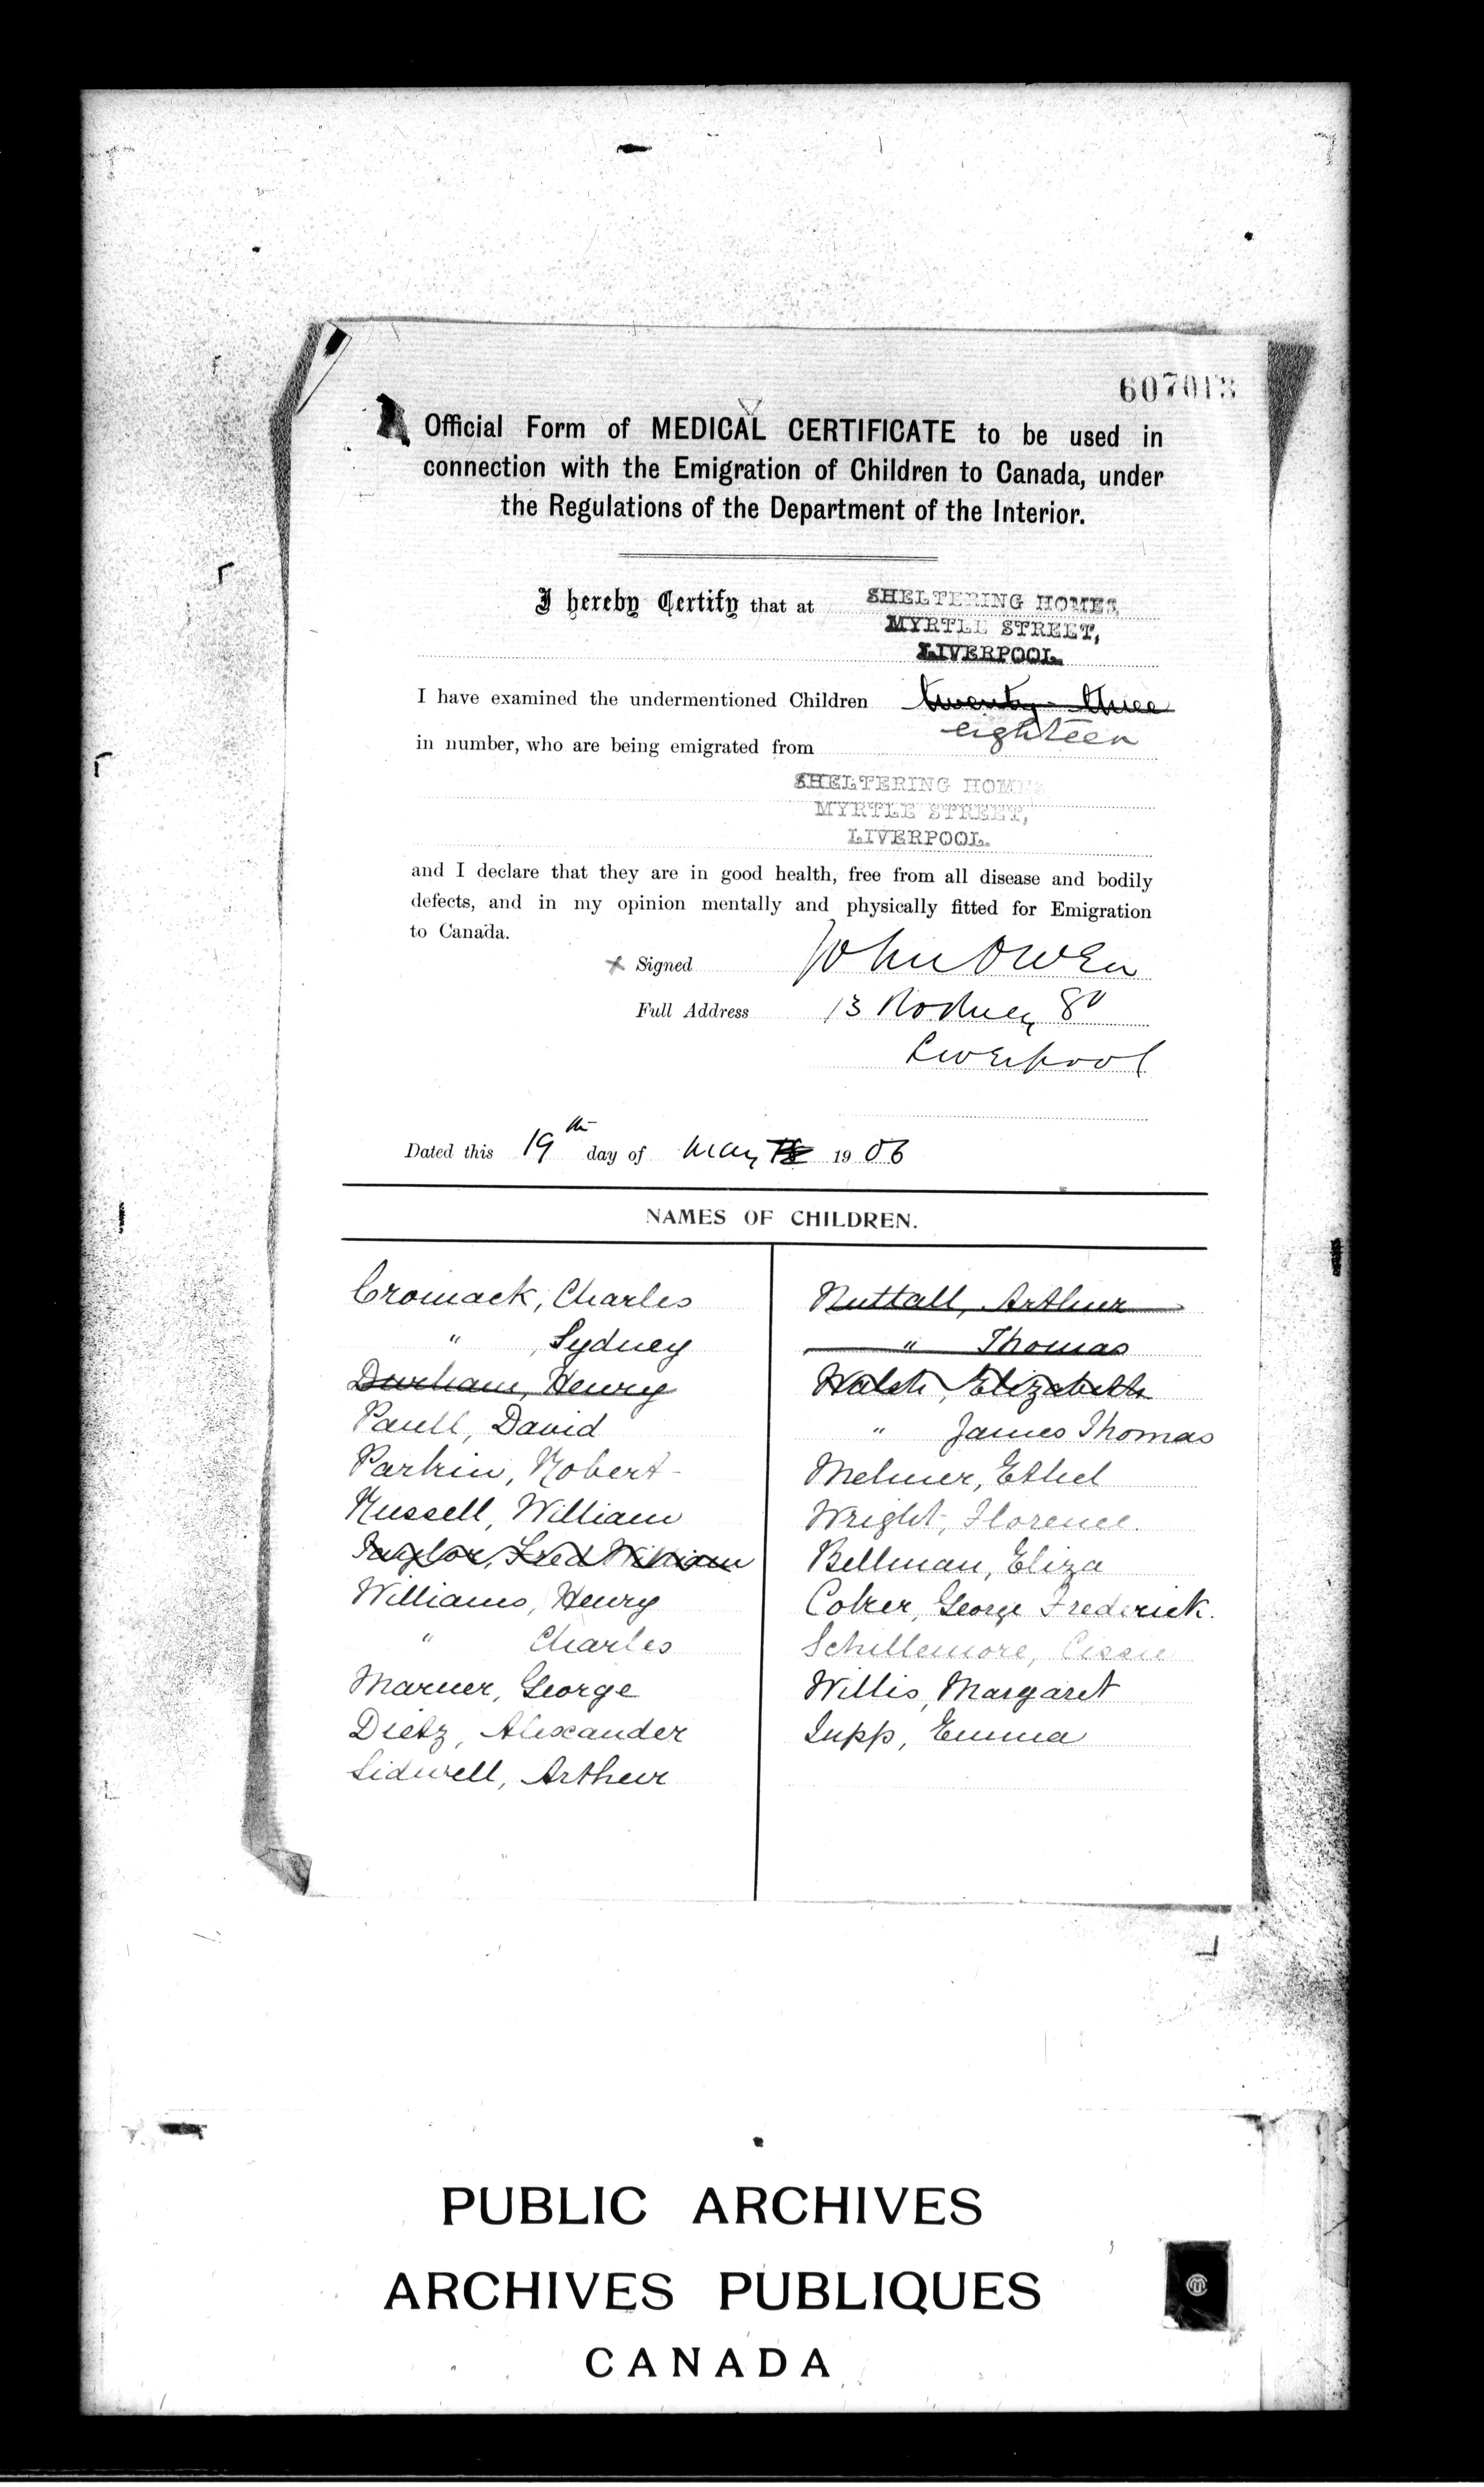 607013
Official Form of MEDICAL CERTIFICATE to be used in
connection with the Emigration of Children to Canada, under
the Regulations of the Department of the Interior.
I hereby Certify that at SHELTERING HOMES,
MYRTLE STREET,
LIVERPOOL.
I have examined the undermentioned Children twenty-three
eighteen
in number, who are being emigrated from
SHELTERING HOMES
MYRTLE STREET,
LIVERPOOL.
and I declare that they are in good health, free from all disease and bodily
defects, and in my opinion mentally and physically fitted for Emigration
to Canada.
x Signed John Owen
Full Address 13 Rodney St
Liverpool
Dated this 19th day of May 1906
NAMES OF CHILDREN.
Cromack, Charles
" , Sydney
Durham, Henry
Paull, David
Parkin, Robert
Russell, William
Taylor, Fred William
Williams, Henry
" Charles
Marner, George
Dietz, Alexander
Sidwell, Arthur
Nuttall, Arthur
" Thomas
Walsh, Elizabeth
" James Thomas
Melmer, Ethel
Wright, Florence.
Bellman, Eliza
Coker, George Frederick.
Schillemore, Cissie
Willis, Margaret
Jupp, Emma
PUBLIC ARCHIVES
ARCHIVES PUBLIQUES
CANADA